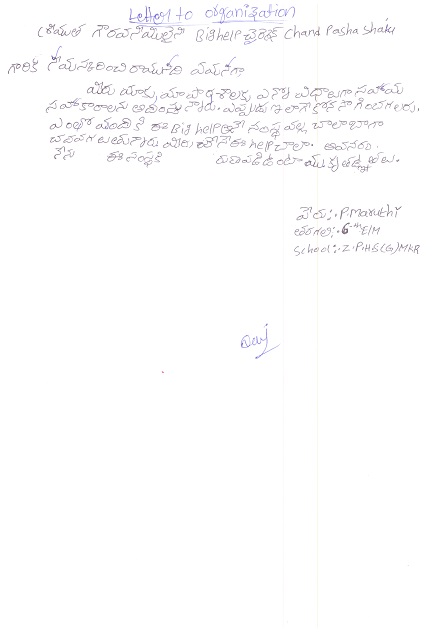 Letter to organization
శ్రీయుత గౌరవనీయులైన Bighelp డైరెక్టర్ Chand Pasha Shaik
గారికి నమస్కరించి రాయునది ఏమనగా
మీరు మాకు, మా పాఠశాలకు ఎన్నో విధాలుగా సహాయ
సహకారాలను అందిస్తున్నారు. ఎప్పుడు ఇలాగే కొనసాగించగలరు.
ఎంతో మందికి ఈ Big help అనే సంస్థ వల్ల చాలా బాగా
చదవగలుతున్నారు మీరు చేసే ఈ help చాలా. అవసరం.
నేను ఈ సంస్థకి రుణపడి ఉంటాము
పేరు:. P. Maruthi
తరగతి:. 6th E/M
School:. Z.P.H.S(G) MKR